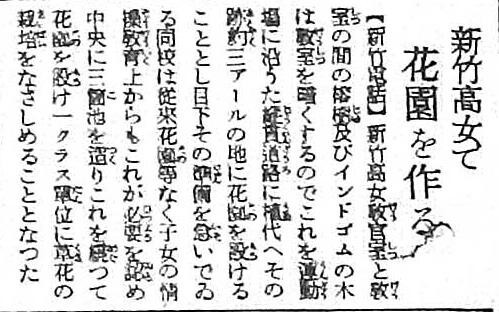 新竹高女で
花園を作る
【新竹電話】新竹高女教官室と教
室の間の榕樹及びインドゴムの木
は教室を暗くするのでこれを運動
場に沿うた縦貫道路に植代へその
跡約三アールの地に花園を設ける
こととし目下その準備を急いでゐ
る同校は従来花園等なく子女の情
操教育上からもこれが必要を認め
中央に三箇池を造りこれを繞つて
花園を設け一クラス単位に草花の
栽培をなさしめることとなつた